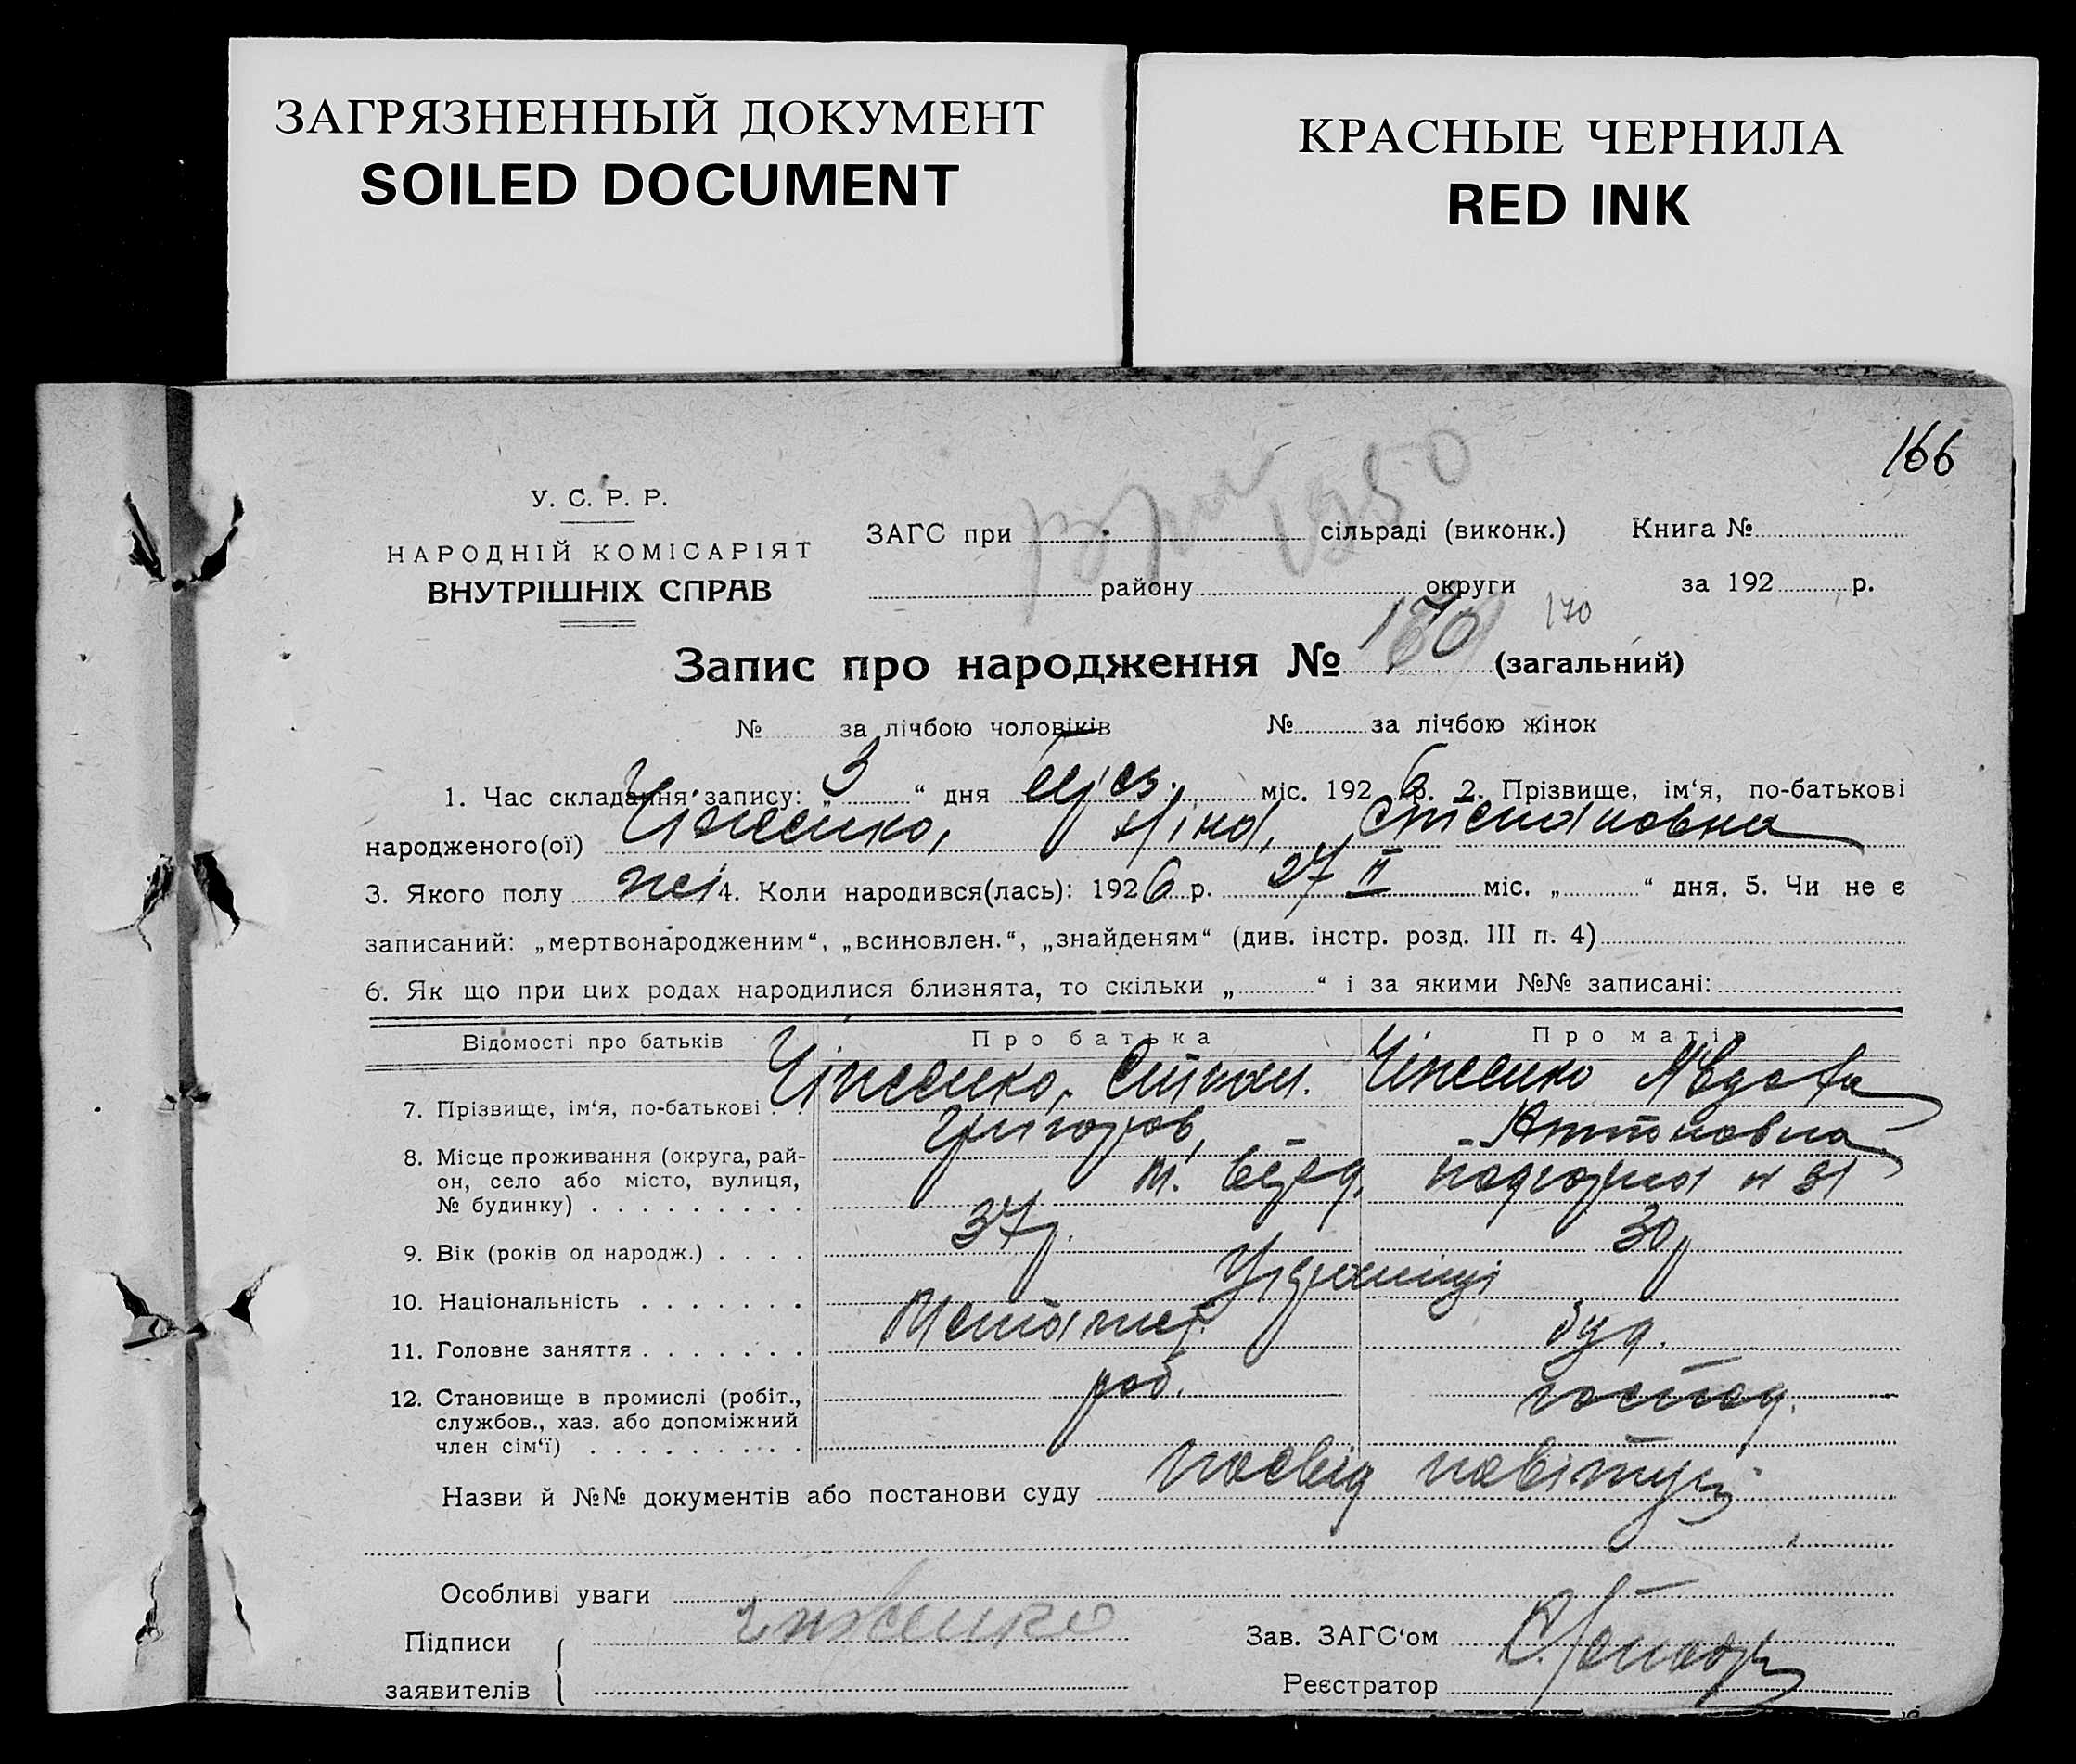 ЗАГРЯЗНЕННЫЙ ДОКУМЕНТ
SOILED DOCUMENT
КРАСНЫЕ ЧЕРНИЛА
RED INK
166
1950
У. С. Р. Р.
НАРОДНІЙ КОМІСАРІЯТ
ВНУТРІШНІХ СПРАВ
ЗАГС при сільраді (виконк.) Книга №
району округи за 192 р.
170
Запис про народження № 170 (загальний)
№ за лічбою чоловіків № за лічбою жінок
1. Час складання запису: „3“ дня міс. 1926 р. 2. Прізвище, ім‘я, по-батькові
народженого(ої) Ніна, Степановна
3. Якого полу жі 4. Коли народився(лась): 1926 р. 27 II міс. „ “ дня. 5. Чи не є
записаний: „мертвонародженим“, „всиновлен.“, „знайденям“ (див. інстр. розд. III п. 4)
6. Як що при цих родах народилися близнята, то скільки „ “ і за якими №№ записані:
Відомості про батьків Про батька Про матір
7. Прізвище, ім‘я, по-батькові Степан. Явдоха
Григоров, Антоновна
8. Місце проживання (округа, рай-
он, село або місто, вулиця,
№ будинку) нагорна № 31
9. Вік (років од народж.) 37 р. 30 р
10. Національність Українці
11. Головне заняття
12. Становище в промислі (робіт., роб. господ.
службов., хаз. або допоміжний
член сім‘ї)
Назви й №№ документів або постанови суду посвід
Особливі уваги
Підписи Зав. ЗАГС‘ом
заявителів Реєстратор